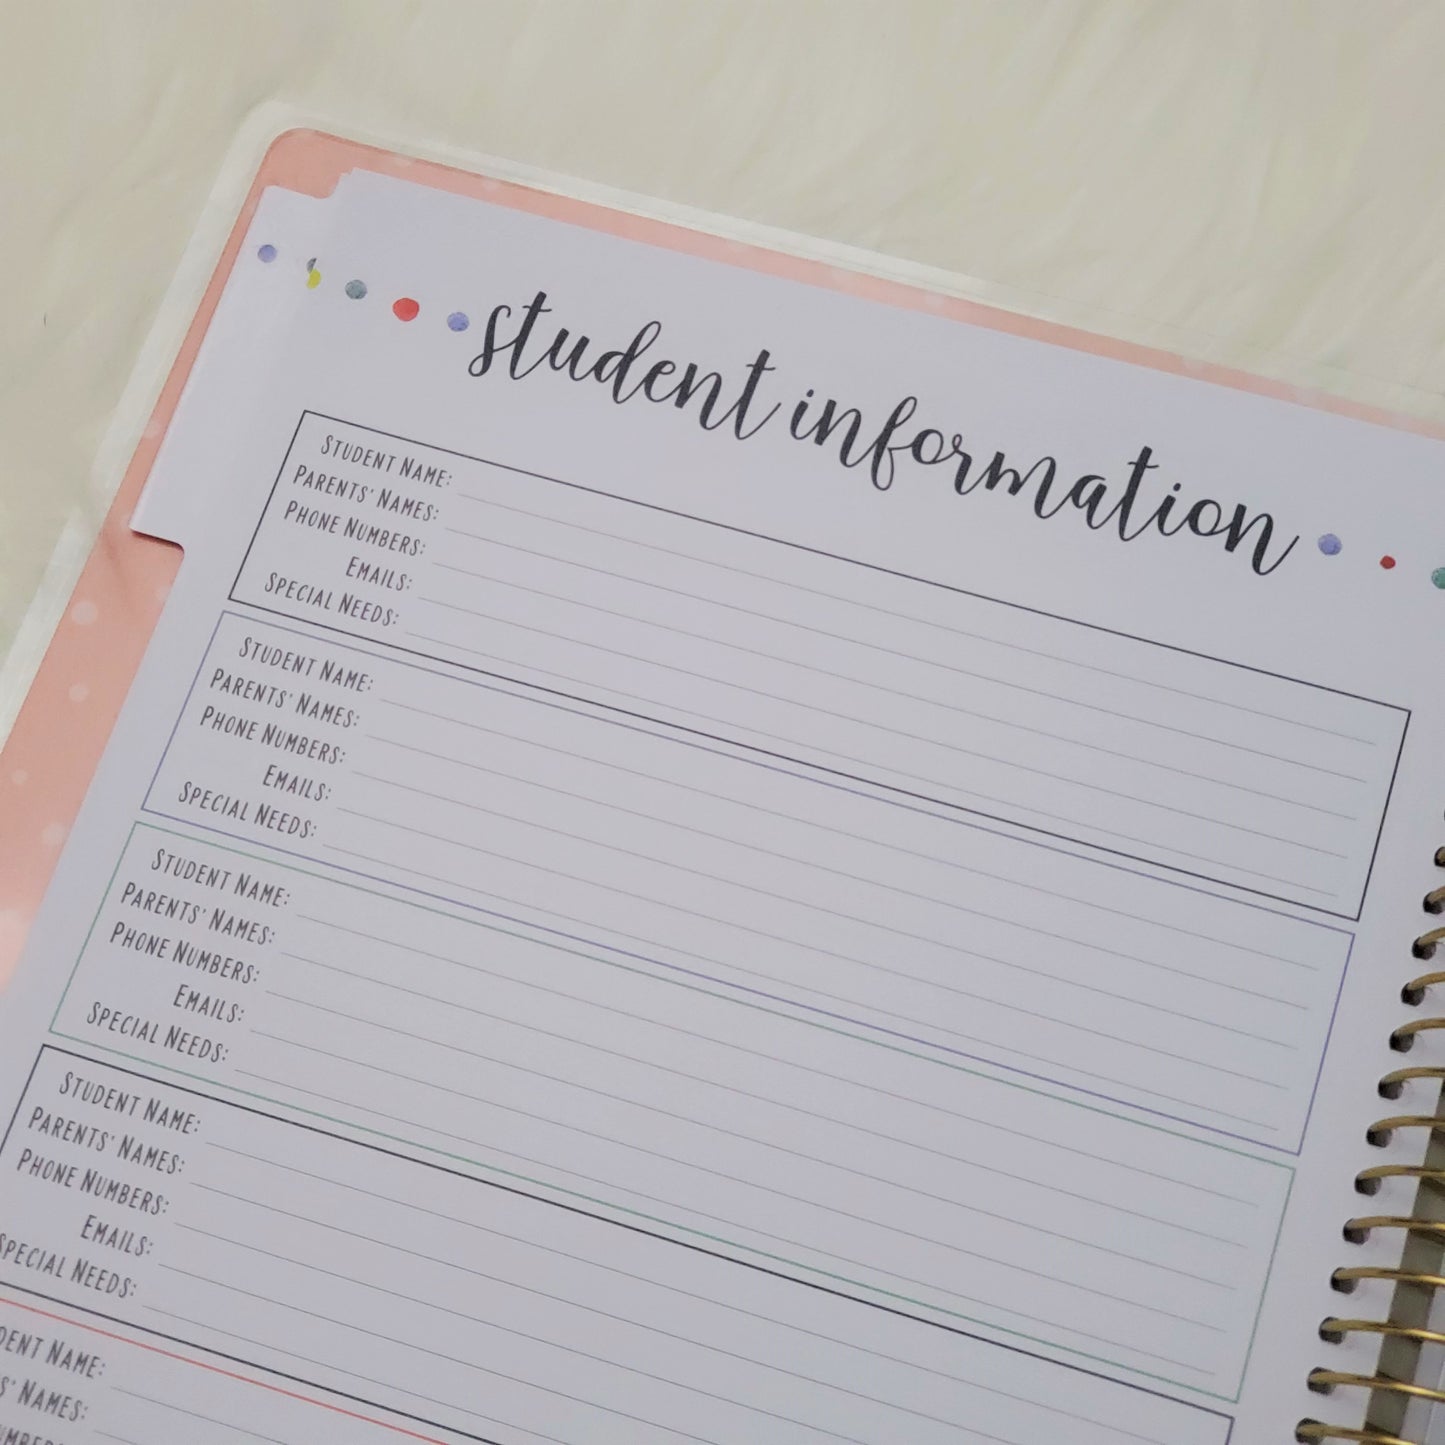 student information
STUDENT NAME:
PARENTS' NAMES:
PHONE NUMBERS:
EMAILS:
SPECIAL NEEDS:
STUDENT NAME:
PARENTS' NAMES:
PHONE NUMBERS:
EMAILS:
SPECIAL NEEDS:
STUDENT NAME:
PARENTS' NAMES:
PHONE NUMBERS:
EMAILS:
SPECIAL NEEDS:
STUDENT NAME:
PARENTS' NAMES:
PHONE NUMBERS:
EMAILS:
SPECIAL NEEDS:
DENT NAME:
S' NAMES: